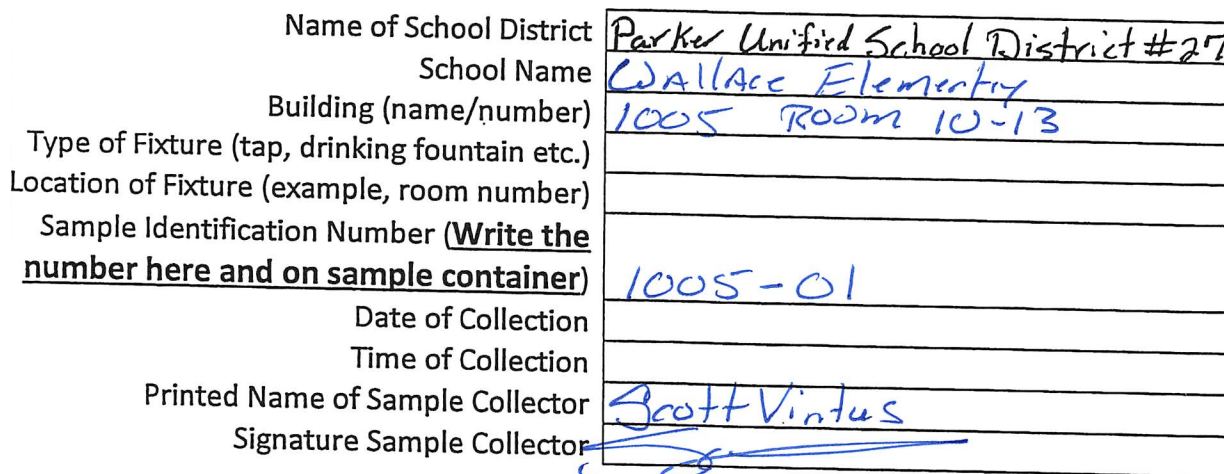 Name of School District Parker Unified School District #27
School Name Wallace Elementry
Building (name/number) 1005 Room 10-13
Type of Fixture (tap, drinking fountain etc.)
Location of Fixture (example, room number)
Sample Identification Number (Write the
number here and on sample container) 1005-01
Date of Collection
Time of Collection
Printed Name of Sample Collector Scott Vintus
Signature Sample Collector